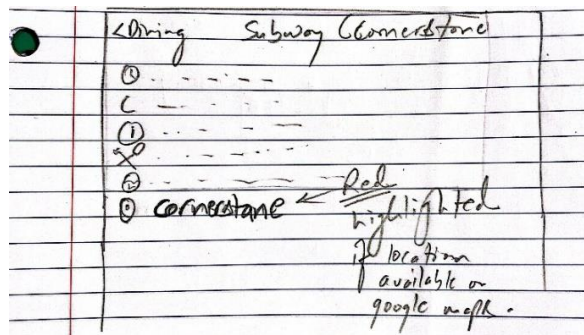 <Dining Subway (Cornerstone
cornerstone
Red
highlighted
if location
available on
google maps.